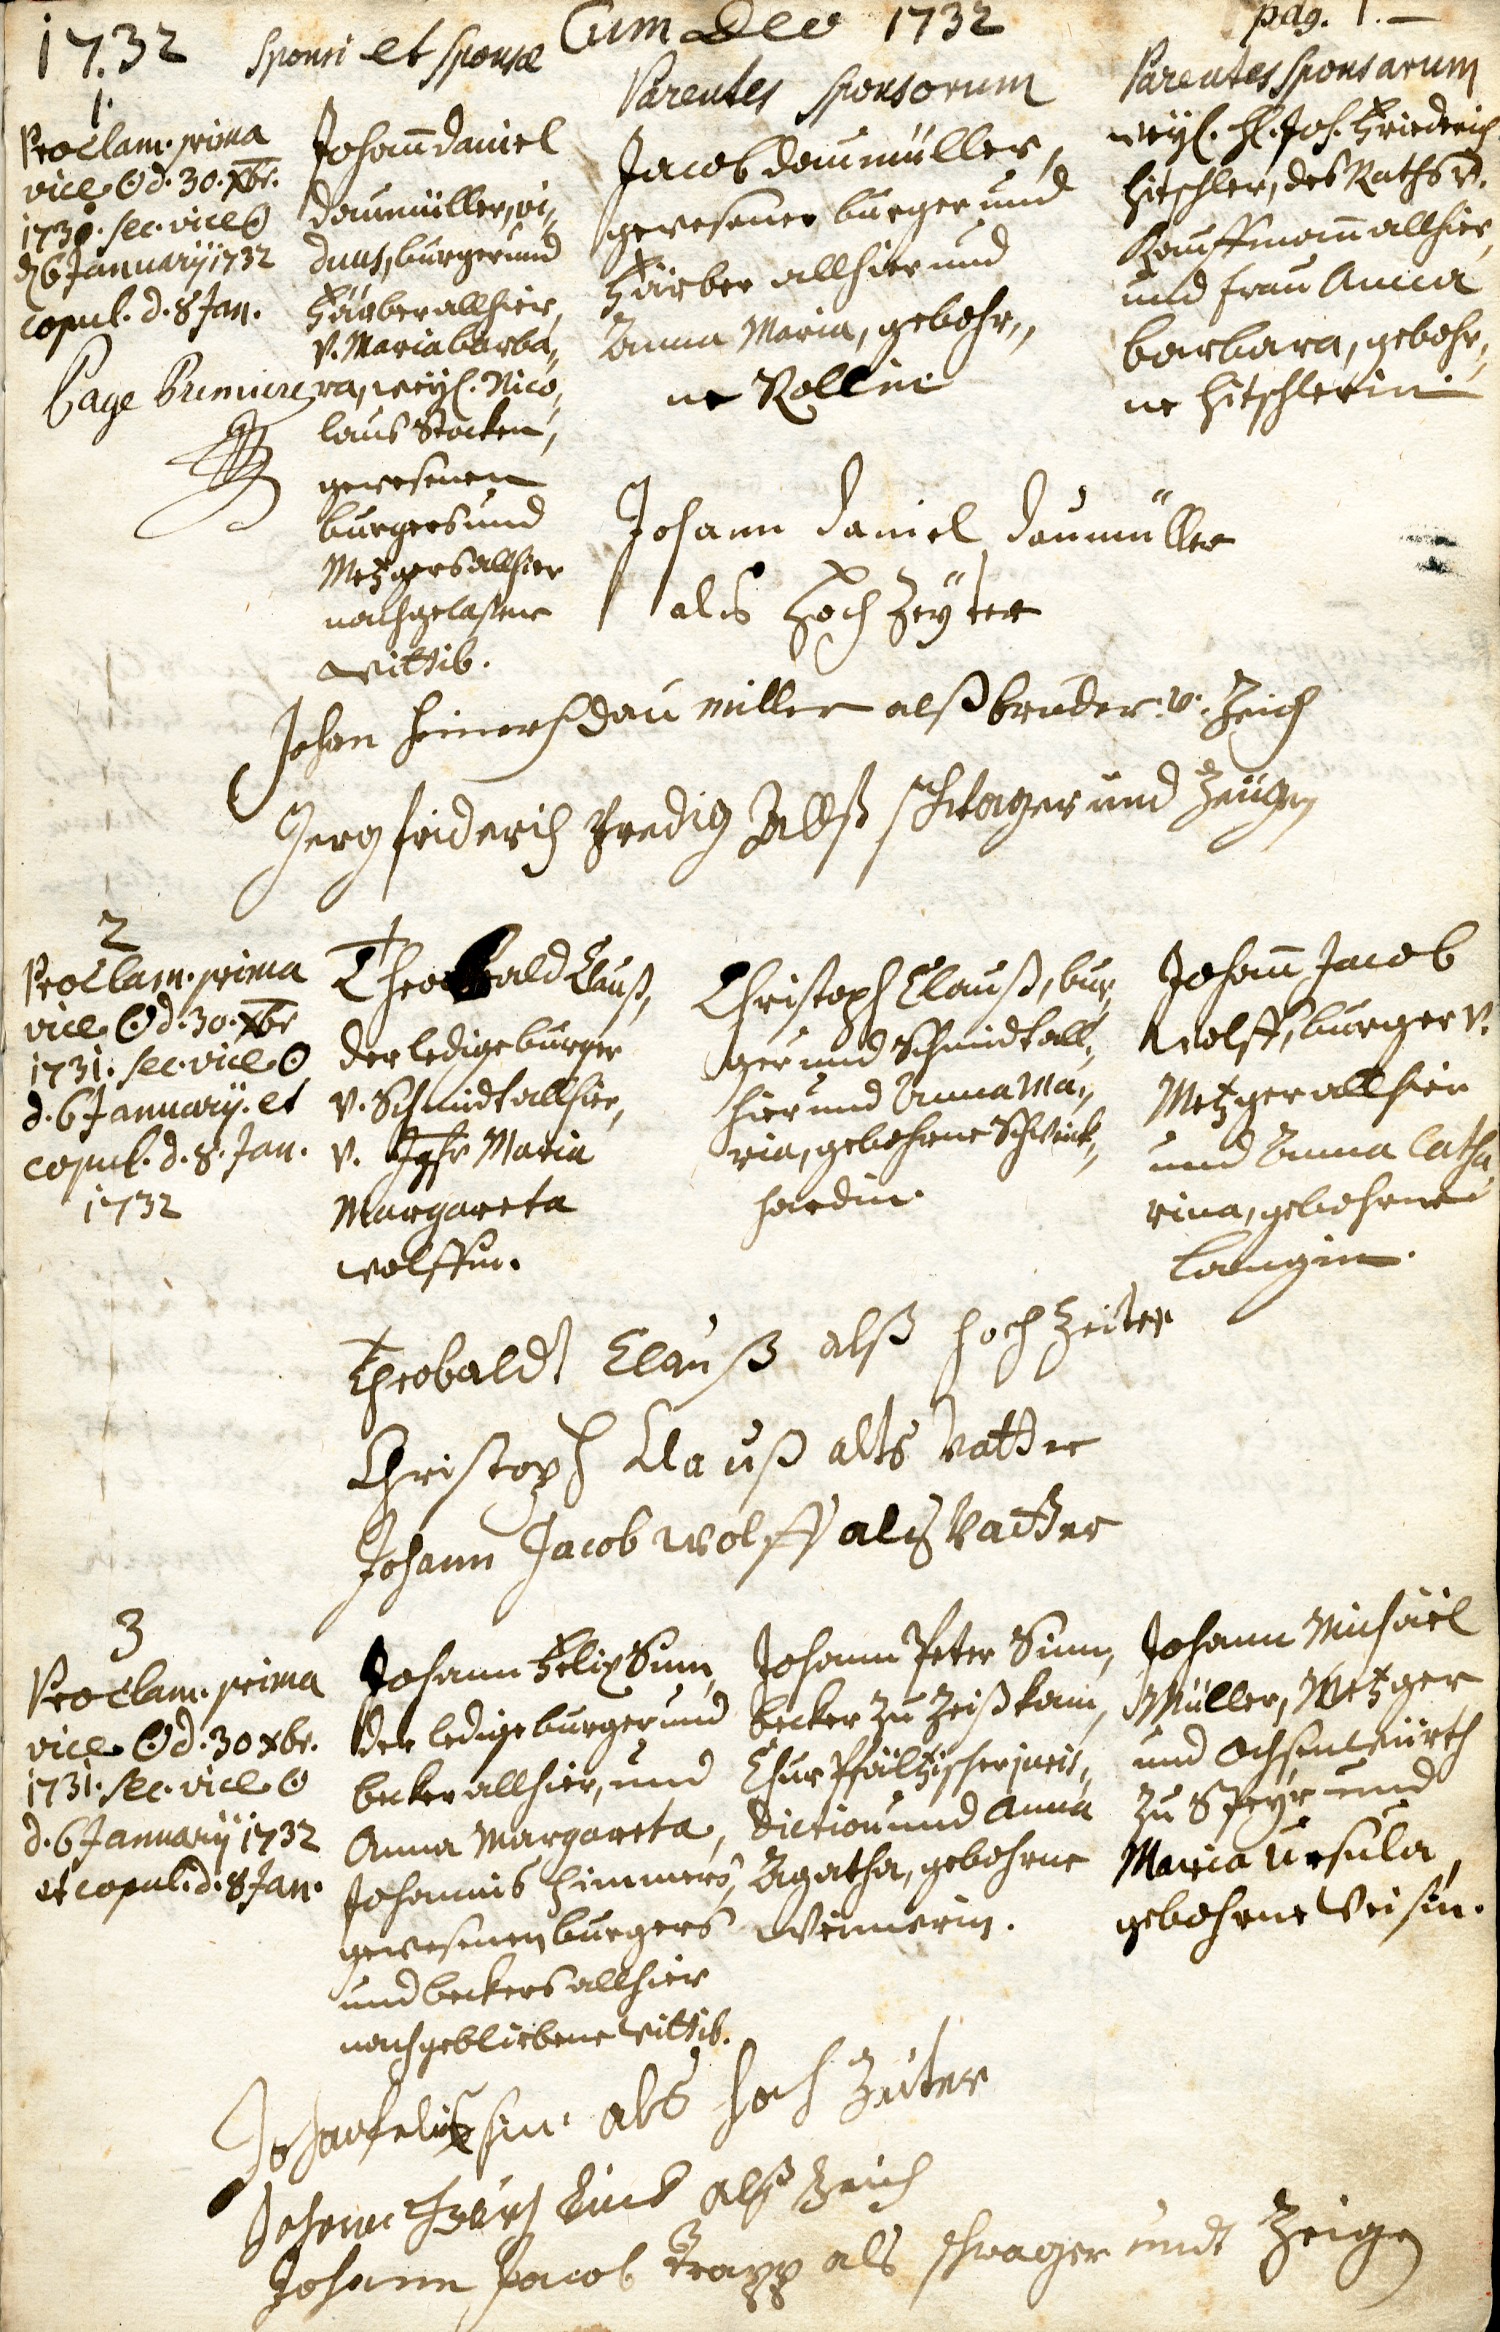 Cum Deo 1732
pag. 1.
1732
Sponsi et Sponsæ
Parentes Sponsorum
Parentes Sponsarum
1.
Proclam. prima
vice ☉ d. 30. Xbr.
1731. sec. vice ☉
d. 6 January 1732
copul. d. 8 Jan.
Page Premiere
Johan̄ Daniel
Daumüller, vi„
duus, burger und
Färber allhier,
v. Maria Barba„
ra, weyl. Nico„
laus Stocken,
gewesenen
burgers und
Metzgers allhier
nachgelaßene
wittib.
Jacob Daumüller,
gewesener burger und
Färber allhier und
Anna Maria, gebohr„
ne Rollin
weyl. H. Joh. Friederich
Hitschler, des Raths v.
Kauffman̄ allhier,
und Frau Anna
Barbara, gebohr„
ne Hitschlerin.
Johann Daniel Daumüller
als Hoch Zeyter
Johan Heinerich Daumiller alß bruder v. Zeich
Jerg friderich Predig Allß schwager und Zeügen
2
Proclam. prima
vice ☉ d. 30. Xbr
1731. sec. vice ☉
d. 6 January. et
copul. d. 8. Jan.
1732
Theobald Clauß,
der ledige burger
v. Schmidt allhier,
v. Jgfr Maria
Margareta
wolffin.
Christoph Clauß, bur„
ger und Schmidt all„
hier und Anna Ma„
ria, gebohrne Schwink„
hardin.
Johan̄ Jacob
Wolff, burger v.
Metzger allhier
und Anna Catha
rina, gebohrne
Langin.
Theobaldt Clauß alß hoch Zeiter
Christoph Clauß alts Vatter
Johann Jacob wolff als Vatter
3
Proclam. prima
vice ☉ d. 30 xbr.
1731. sec. vice ☉
d. 6 January 1732
et copul. d. 8 Jan.
Johann Felix Sinn,
der ledige burger und
becker allhier, und
Anna Margareta,
Johannis Himmers,
gewesenen burgers
und beckers allhier
nachgebliebene wittib.
Johann Peter Sinn,
becker zu Zeißkam,
Chur Pfältzischer juris„
diction und Anna
Agatha, gebohrne
Weimerin.
Johann Michäel
Müller, Metzger
und Ochsenwürth
zu Speyr und
Maria Ursula,
gebohrne Veisin.
Johan felix sin als hoch Zeiter
Johann alß Zeich
Johann Jacob Trapp als schwager undt Zeige